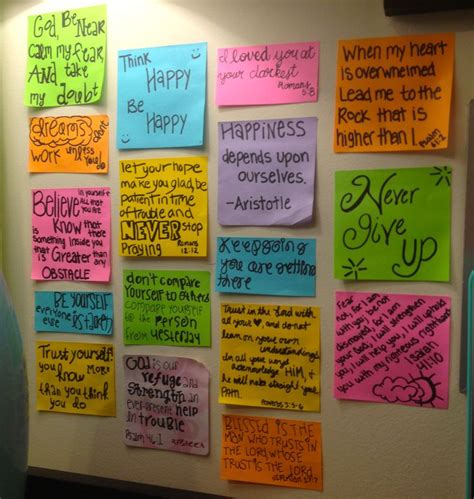 God, Be Near
calm my fear,
And take
my doubt
dreams don't
work unless
you do
Believe in yourself
all that
you are
Know that there
is something inside you
that is Greater than
any
OBSTACLE
BE YOURSELF
everyone
else is taken
Trust yourself
you Know
More
than you think
you do
Think
Happy
Be
Happy
let your hope
make you glad, be
patient in time
of trouble and
NEVER stop
Praying
Romans
12:12
don't compare
yourself to others
compare yourself
to the person
from
yesterday
God is our
refuge and
Strength an
ever-present help
in trouble
Psalm 46:1
I loved you at
your darkest
Romans
5:8
Happiness
depends upon
ourselves.
-Aristotle
Keep going
you are getting
there
Trust in the Lord with
all your ♥, and do not
lean on your own
understanding.
in all your ways
acknowledge HIM, &
he will make straight your
PATH.
Proverbs 3:5-6
Blessed is the
man who trusts in
the Lord, whose
trust is the Lord
Jeremiah 17:7
When my heart
is overwhelmed
Lead me to the
Rock that is
higher than I.
Psalm
61:2
Never
give up
Fear
not, for I am
with you; be not
dismayed, for I am
your God; I will strengthen
you, I will help you, I will uphold
you with my righteous right hand
Isaiah
41:10